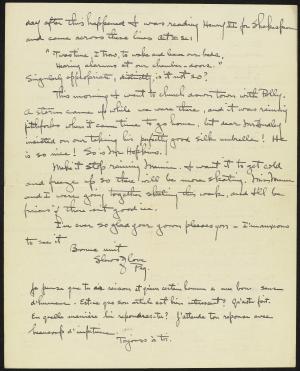 day after this happened I was reading Henry VI for Shakespeare
and came across these lines
"'Twas time, I trow, to wake and leave our beds,
Hearing alarums at our chamber-doors."
Singularly appropriate, is it not so?
This morning I went to church down town with Polly.
A storm came up while we were there, and it was raining
pitchforks when it came time to go home, but dear
insisted on our taking his good silk umbrella! He
is so nice! So is Mr.
Make it stop raining Mamma. I want it to get cold
and freeze up so there will be more skating. Miss
and I were going together skating this week, and it'll be
fierce if there isn't good ice.
I'm ever so glad your gown pleases you – I'm anxious
to see it
Bonne nuit
Slews of love
Peg.
Je pense que tu as raison et qu'en certain homme a un bon sens
d'humeur. Est-ce que son article est bien intéressant? Qu'a-t-il fait.
En quelle manière lui répondras-tu? J'attends ton réponse avec
beaucoup d'
Toujours à toi.